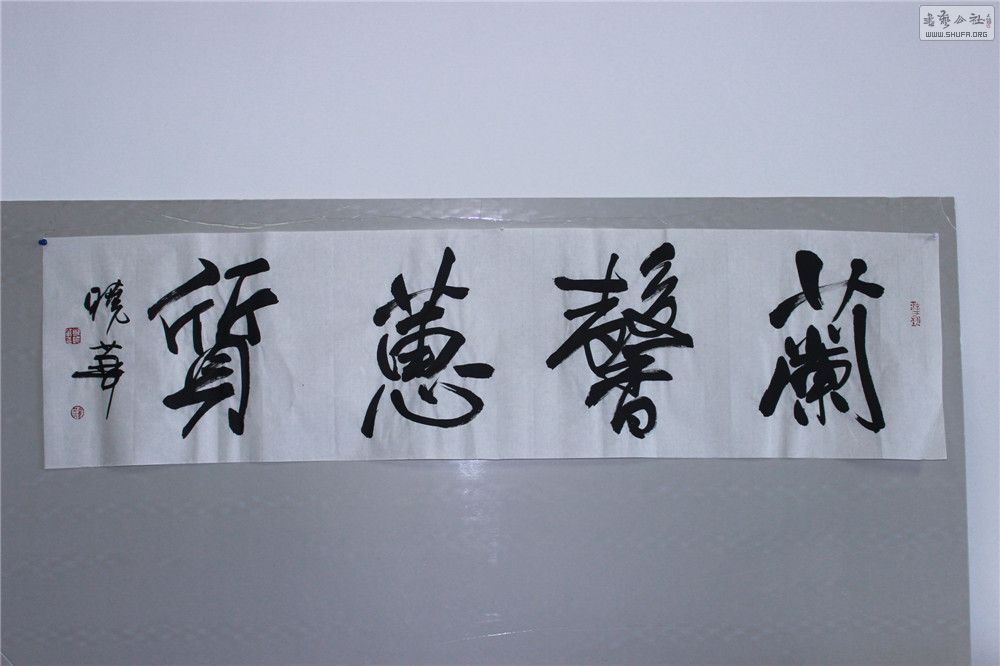 蘭馨蕙質
曉華
書藝公社
WWW.SHUFA.ORG